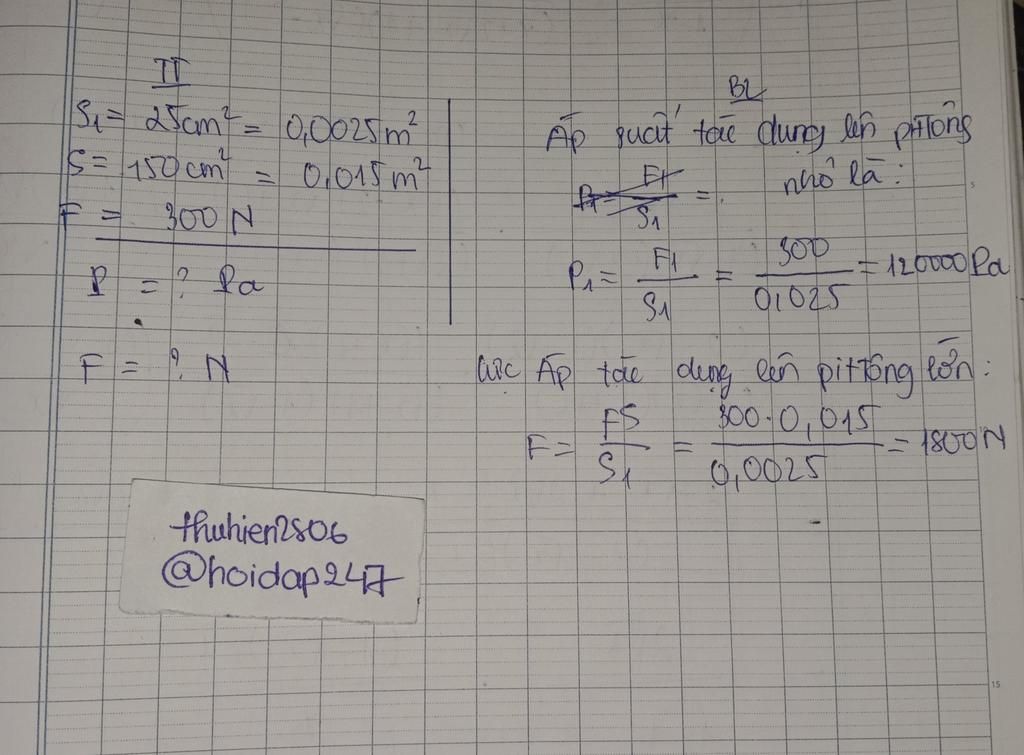 TT
S₁ = 25cm² = 0,0025m²
S = 150cm² = 0,015m²
F = 300N
P = ? Pa
F = ? N
BL
Áp suất tác dụng lên pittông
nhỏ là:
P₁ = F₁/S₁ =
P₁ = F₁/S₁ = 300/0,025 = 120000Pa
Lực Áp tác dụng lên pittông lớn:
F = FS/S₁ = 300.0,015/0,0025 = 1800N
thuhien2806
@hoidap247
15